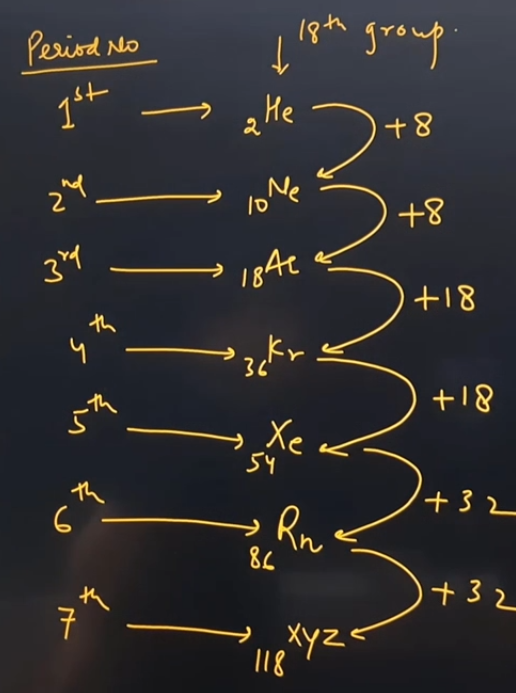 Period No
18th group.
1st → 2He +8
2nd → 10Ne +8
3rd → 18Ae +18
4th → 36Kr +18
5th → 54Xe +32
6th → 86Rn +32
7th → 118xyz